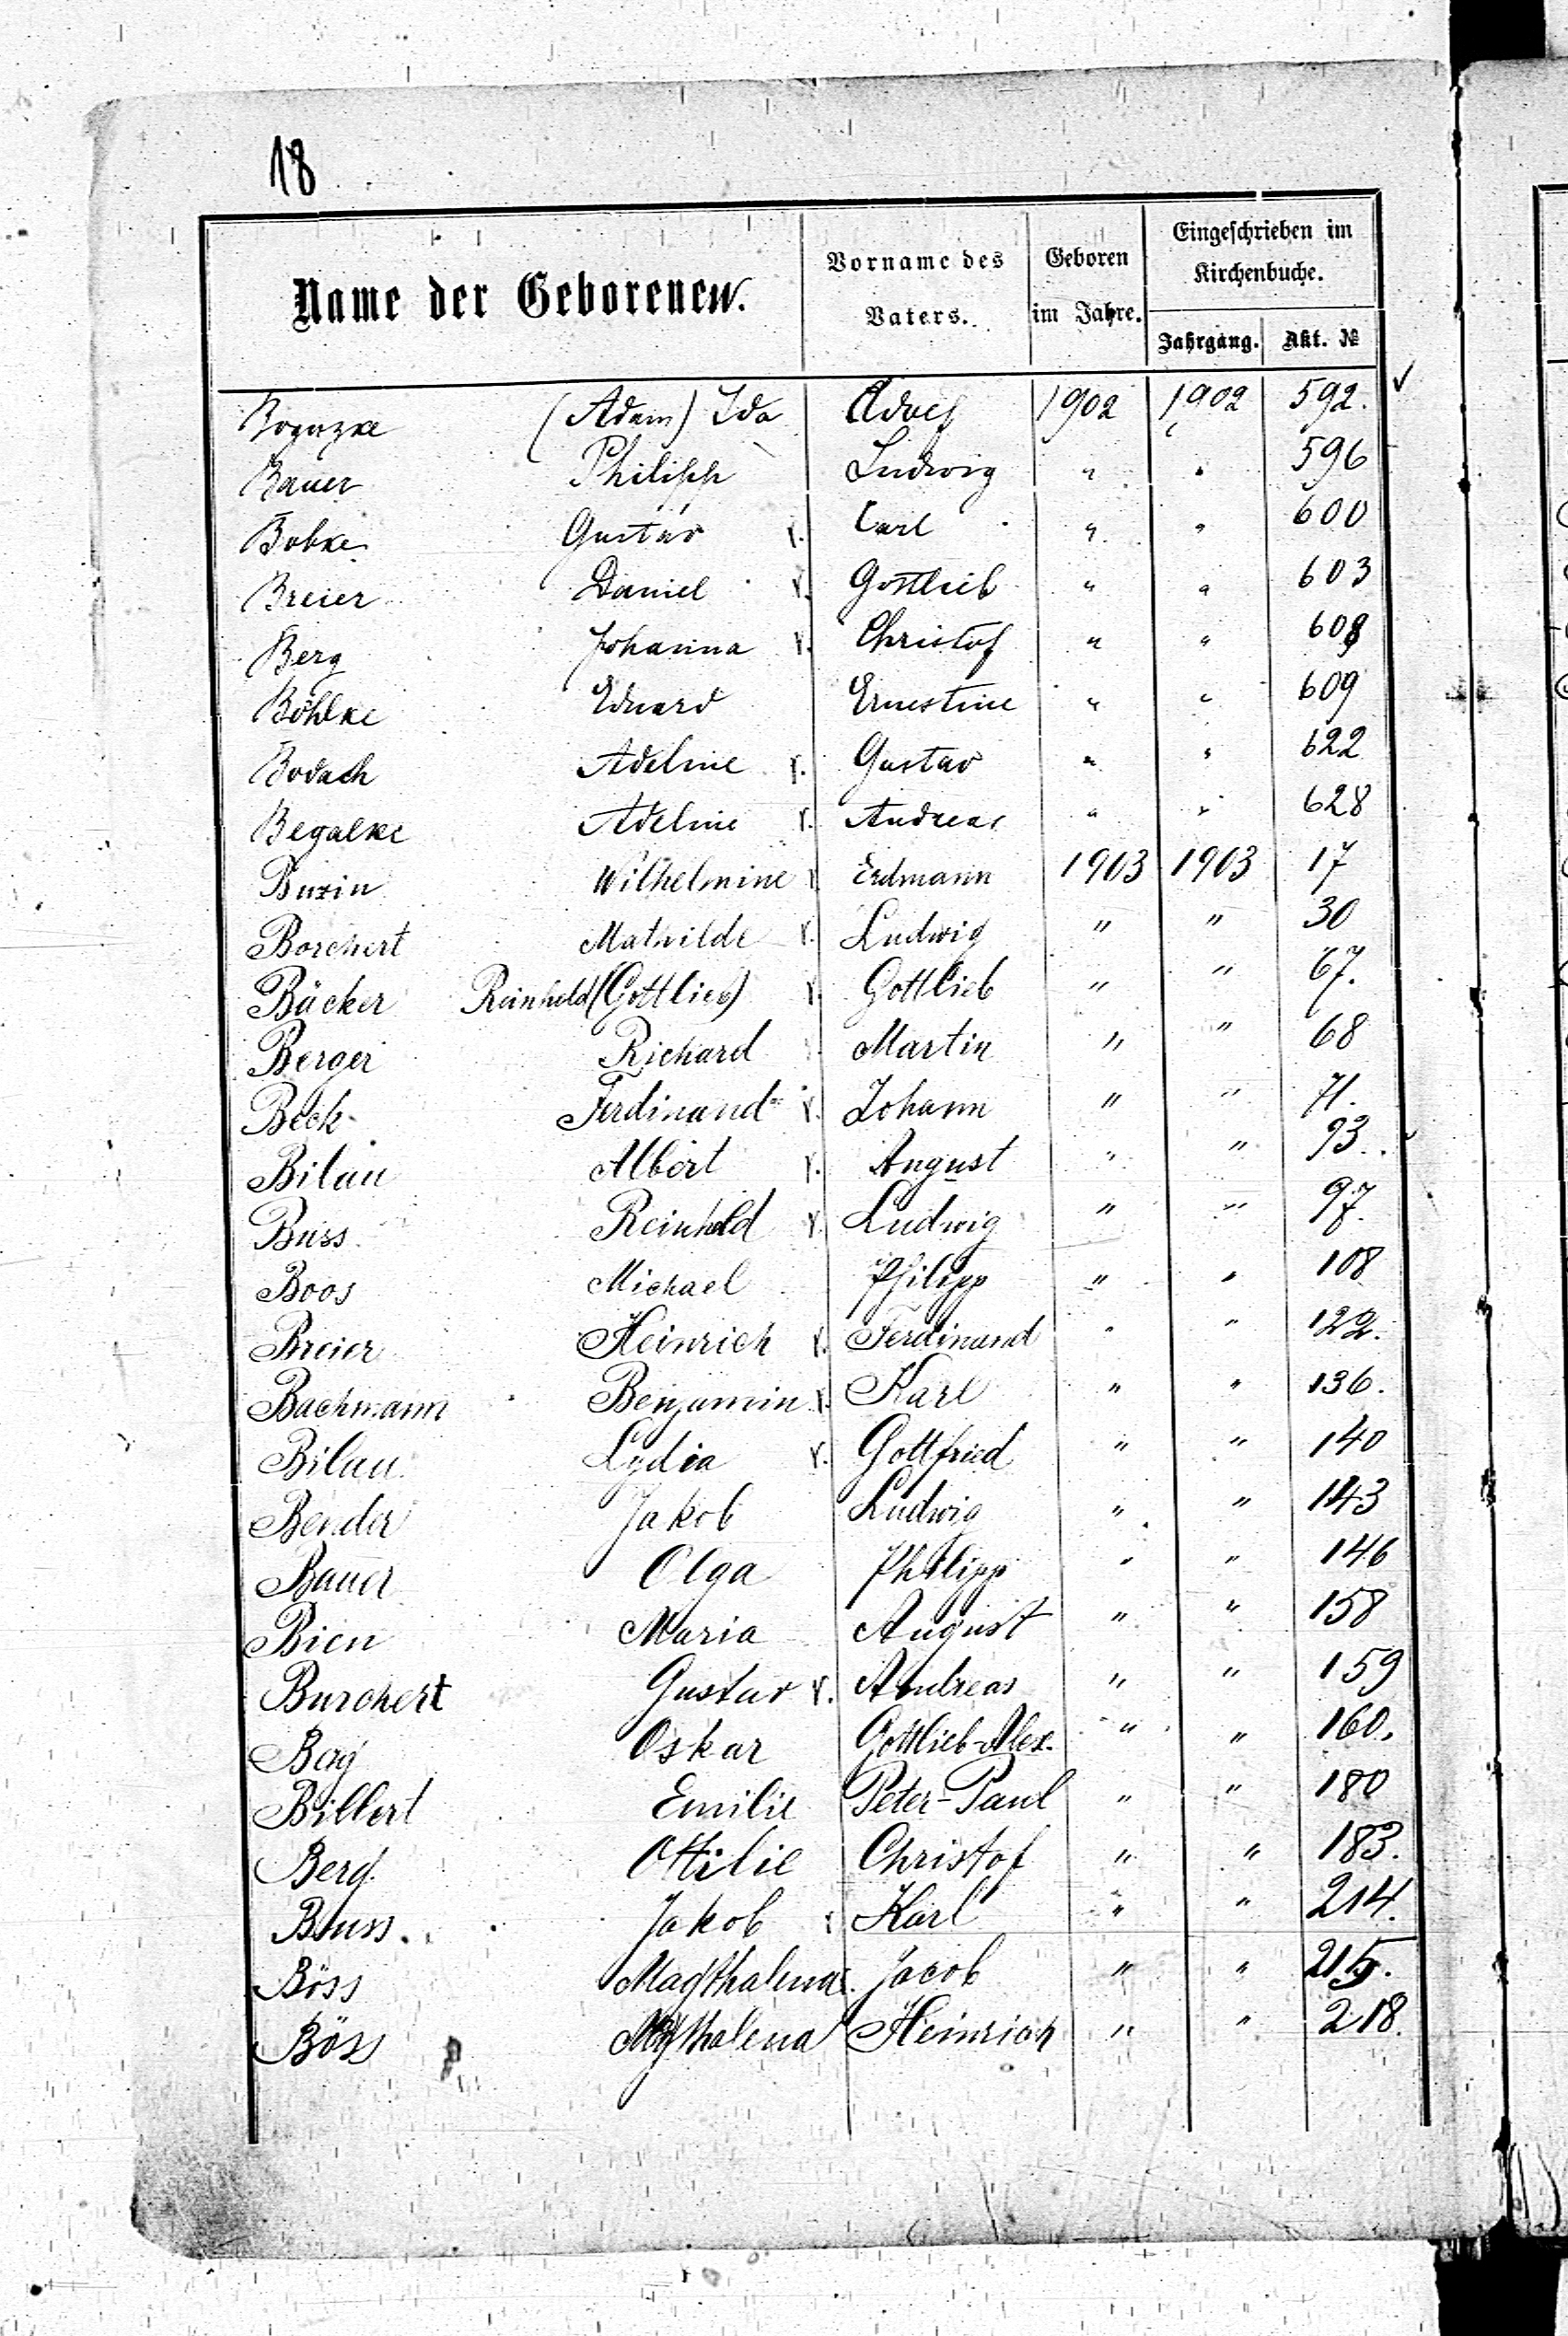 18
Name der Geborenen.
Vorname des Vaters.
Geboren im Jahre.
Eingeschrieben im Kirchenbuche.
Jahrgang. Akt. №
(Adam) Ida Adolf 1902 1902 592.
Bauer Philipp Ludwig " " 596
Bobke Gustav Carl " " 600
Breier Daniel Gottlieb " " 603
Berg Johanna Christof " " 608
Böhlke Eduard Ernestine " " 609
Bodach Adeline Gustav " " 622
Begalke Adeline Andreas " " 628
Buzin Wilhelmine Erdmann 1903 1903 17
Borchert Mathilde Ludwig " " 30
Bäcker Reinhold (Gottlieb) Gottlieb " " 67.
Berger Richard Martin " " 68
Beck Ferdinand Johann " " 71.
Bilau Albert August " " 93.
Buss Reinhold Ludwig " " 97.
Boos Michael Philipp " " 108
Breier Heinrich Ferdinand " " 122.
Bachmann Benjamin Karl " " 136.
Bilau Lydia Gottfried " " 140
Bender Jakob Ludwig " " 143
Bauer Olga Philipp " " 146
Bien Maria August " " 158
Burchert Gustav Andreas " " 159
Oskar Gottlieb-Alex. " " 160.
Billert Emilie Peter-Paul " " 180
Berg. Ottilie Christof " " 183.
Buss. Jakob Karl " " 214.
Böss Magthalena Jacob " " 215.
Böss Mgthalena Heinrich " " 218.